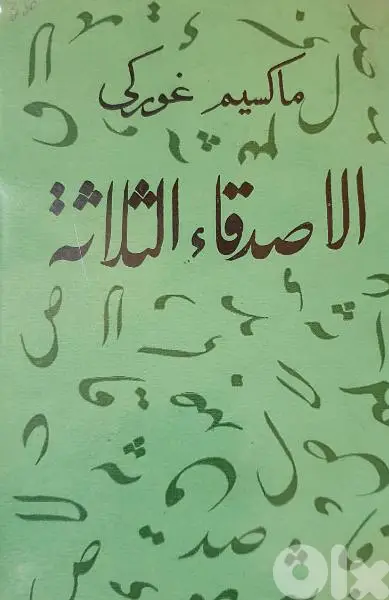 ماكسيم غوركي
الاصدقاء الثلاثة
olx